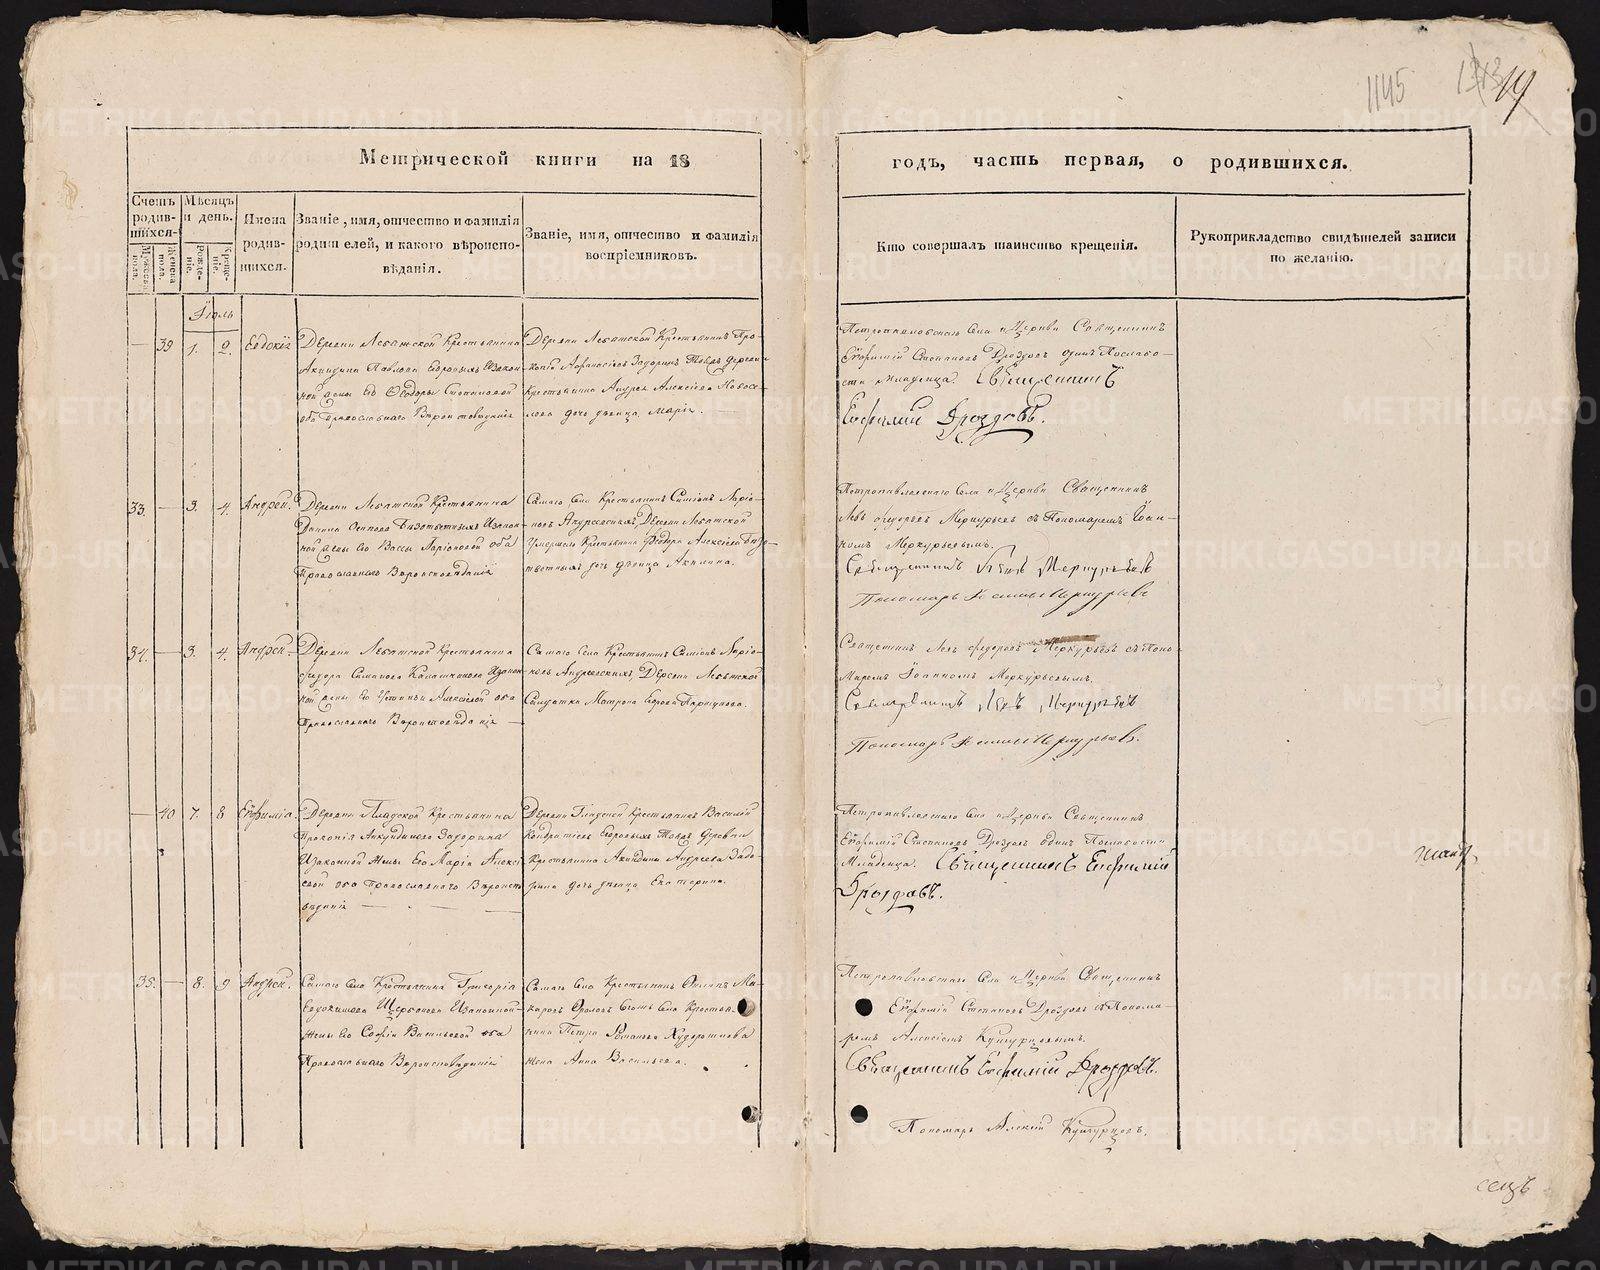 1145
19
Метрической книги на 18
годъ, часть первая, о родившихся.
Счетъ родив-
шихся.
Мужеска пола.
Женска пола.
Мѣсяцъ
и день.
Рожде-
ніе.
Креще-
ніе.
Имена
родив-
шихся.
Званіе, имя, отчество и фамилія
родителей, и какого вѣроиспо-
вѣданія.
Званіе, имя, отчество и фамилія
воспріемниковъ.
Кто совершалъ таинство крещенія.
Рукоприкладство свидѣтелей записи
по желанію.
Іюль
39
1.
2.
Евдокія
Деревни Лебатской Крестьянина
Акиндина Павлова Егоровыхъ Изакон-
ной жены Его Ѳеодоры Степановой
оба Православнаго Вѣроисповеданія
Деревни Лебатской Крестьянинъ Про-
копій Афанасіевъ Задоринъ Тоежъ деревни
Крестьянина Андрея Алексіева Новосе-
лова дочь дѣвица Марія.
Петропавловскаго Села Церкви Священникъ
Евфимій Стефановъ Дроздовъ одинъ Послабо-
сти Младенца. Священникъ
Евфимій Дроздовъ.
33.
3.
4.
Андрей.
Деревни Лебатской Крестьянина
Данила Осипова Изакон-
ной жены Его Вассы Ларіоновой оба
Православнаго Вѣроисповѣданія
Самаго Села Крестьянинъ Симіонъ Ларіо-
новъ Андреевскихъ, Деревни Лебатской
Умершаго Крестьянина Федора Алексіева
дочь дѣвица Акилина.
Петропавловскаго Села Церкви Священникъ
Левъ Федоровъ Меркурьевъ съ Пономаремъ Іоан-
номъ Меркурьевымъ.
Священникъ Левъ Меркурьевъ
Пономарь Меркурьевъ
34.
3.
4.
Андрей.
Деревни Лебатской Крестьянина
Федора Симанова Калашникова Изакон-
ной жены Его Устиньи Алексіевой оба
Православнаго Вѣроисповѣданія
Самаго Села Крестьянинъ Симіонъ Ларіо-
новъ Андреевскихъ, Деревни Лебатской
Салдатка Матрона Егорова Паршукова.
Священникъ Левъ Федоровъ Меркурьевъ съ Поно-
маремъ Іоанномъ Меркурьевымъ
Священникъ Левъ Меркурьевъ
Пономарь Меркурьевъ.
40
7.
8
Евфимія.
Деревни Гладской Крестьянина
Прокопія Анкудинова Задорина
Изаконной Жены Его Маріи Алексі-
евой оба Православнаго Вѣроиспо-
вѣданія
Деревни Гладской Крестьянинъ Василій
Кондратіевъ Егоровыхъ Тоежъ деревни
Крестьянина Акиндина Андреева Задо-
рина дочь дѣвица Екатерина.
Петропавловскаго Села Церкви Священникъ
Евфимій Стефановъ Дроздовъ одинъ Послабости
Младенца. Священникъ Евфимій
Дроздовъ.
35.
8.
9
Андрей.
Самаго Села Крестьянина Григорія
Евдокимова Щербакова Изаконной
Жены Его Софіи Васильевой оба
Православнаго Вѣроисповѣданія
Самаго Села Крестьянинъ Осипъ Ма-
каровъ Орловъ Села Крестья-
нина Петра Романова Худорошкова
жена Анна Васильева.
Петропавловскаго Села Церкви Священникъ
Евфимій Стефановъ Дроздовъ съ Понома-
ремъ Алексіемъ Кунгурцовымъ.
Священникъ Евфимій Дроздовъ.
Пономарь Алексій Кунгурцовъ.
METRIKI.GASO-URAL.RU